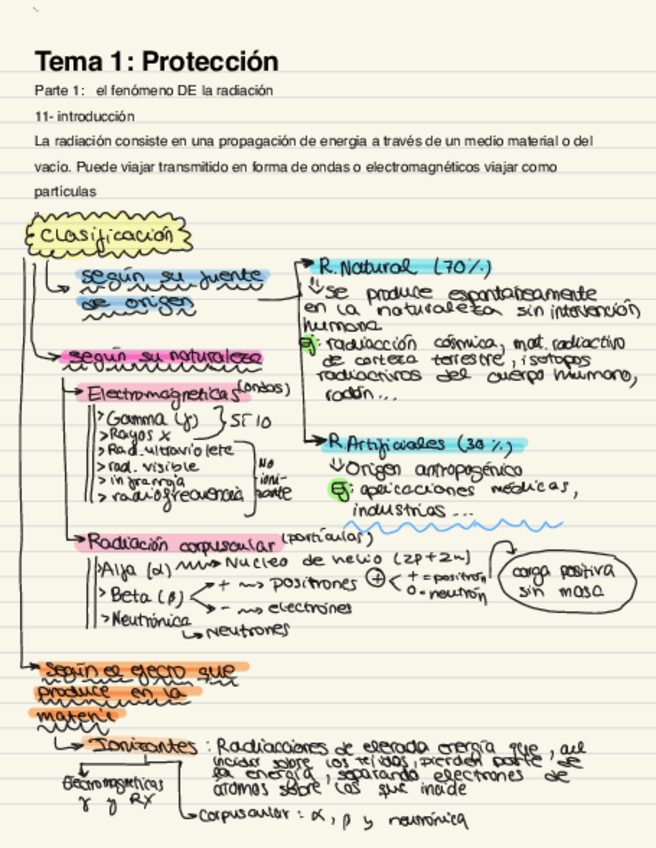 Tema 1: Protección
Parte 1: el fenómeno DE la radiación
11- introducción
La radiación consiste en una propagación de energia a través de un medio material o del
vacío. Puede viajar transmitido en forma de ondas o electromagnéticos viajar como
partículas
Clasificación
según su fuente
de origen
R. Natural (70%)
↓ se produce espontaneamente
en la naturaleza sin intervención
humana
Ej: radiacción cósmica, mat. radiactivo
de corteza terrestre, isotopos
radiactivos del cuerpo humano,
radón...
R. Artificiales (30%)
↓ Origen antropogénico
Ej: aplicaciones médicas,
industrias ...
según su naturaleza
Electromagneticas (ondas)
> Gamma (γ)
> Rayos X
> Rad. ultraviolete
> rad. visible
> infrarroja
> radiofrecuencia
No
ioni-
zante
Radiación corpuscular (partículas)
> Alfa (α) → Nucleo de helio (2p+2n)
> Beta (β)
+ → positrones
- → electrones
+ = positrón
0 = neutrón
carga positiva
sin masa
> Neutrónica
↳ Neutrones
según el efecto que
produce en la
materie
↳ Ionizantes : Radiacciones de elevada energía que, al
incidir sobre los tejidos, pierden parte de
su energía, separando electrones de
átomos sobre los que incide
Electromagnéticas
γ y RX
corpuscular : α, β y neutrónica